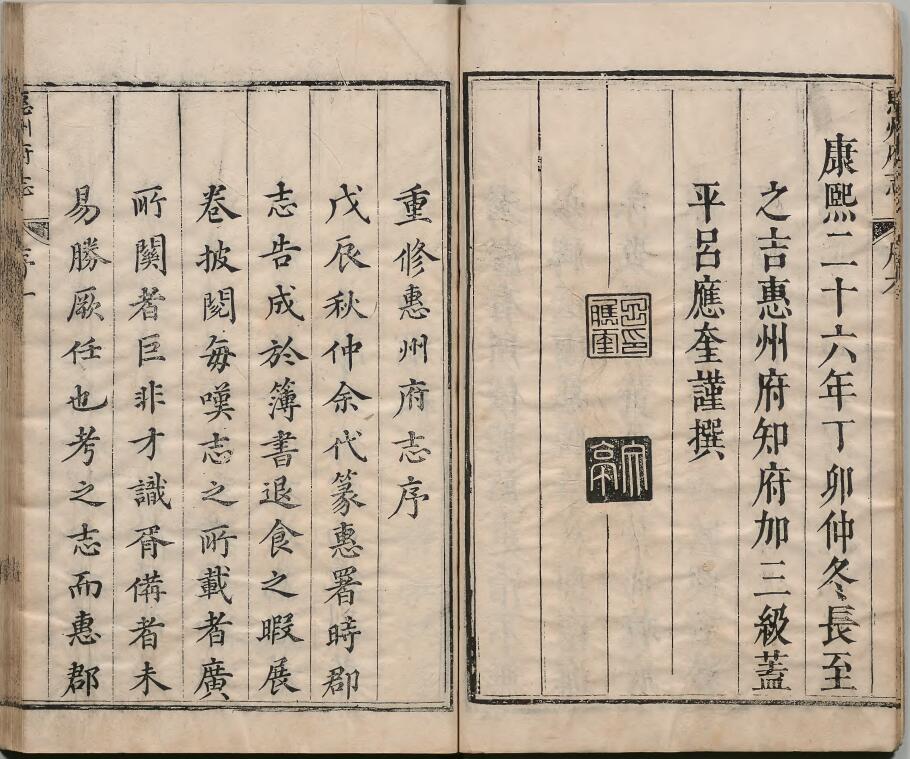 康熙二十六年丁卯仲冬長至
之吉惠州府知府加三級蓋
平呂應奎謹撰
重修惠州府志序
戊辰秋仲余代篆惠署時郡
志告成於簿書退食之暇展
卷披閱每嘆志之所載者廣
所關者巨非才識胥備者未
易勝厥任也考之志而惠郡
惠州府志